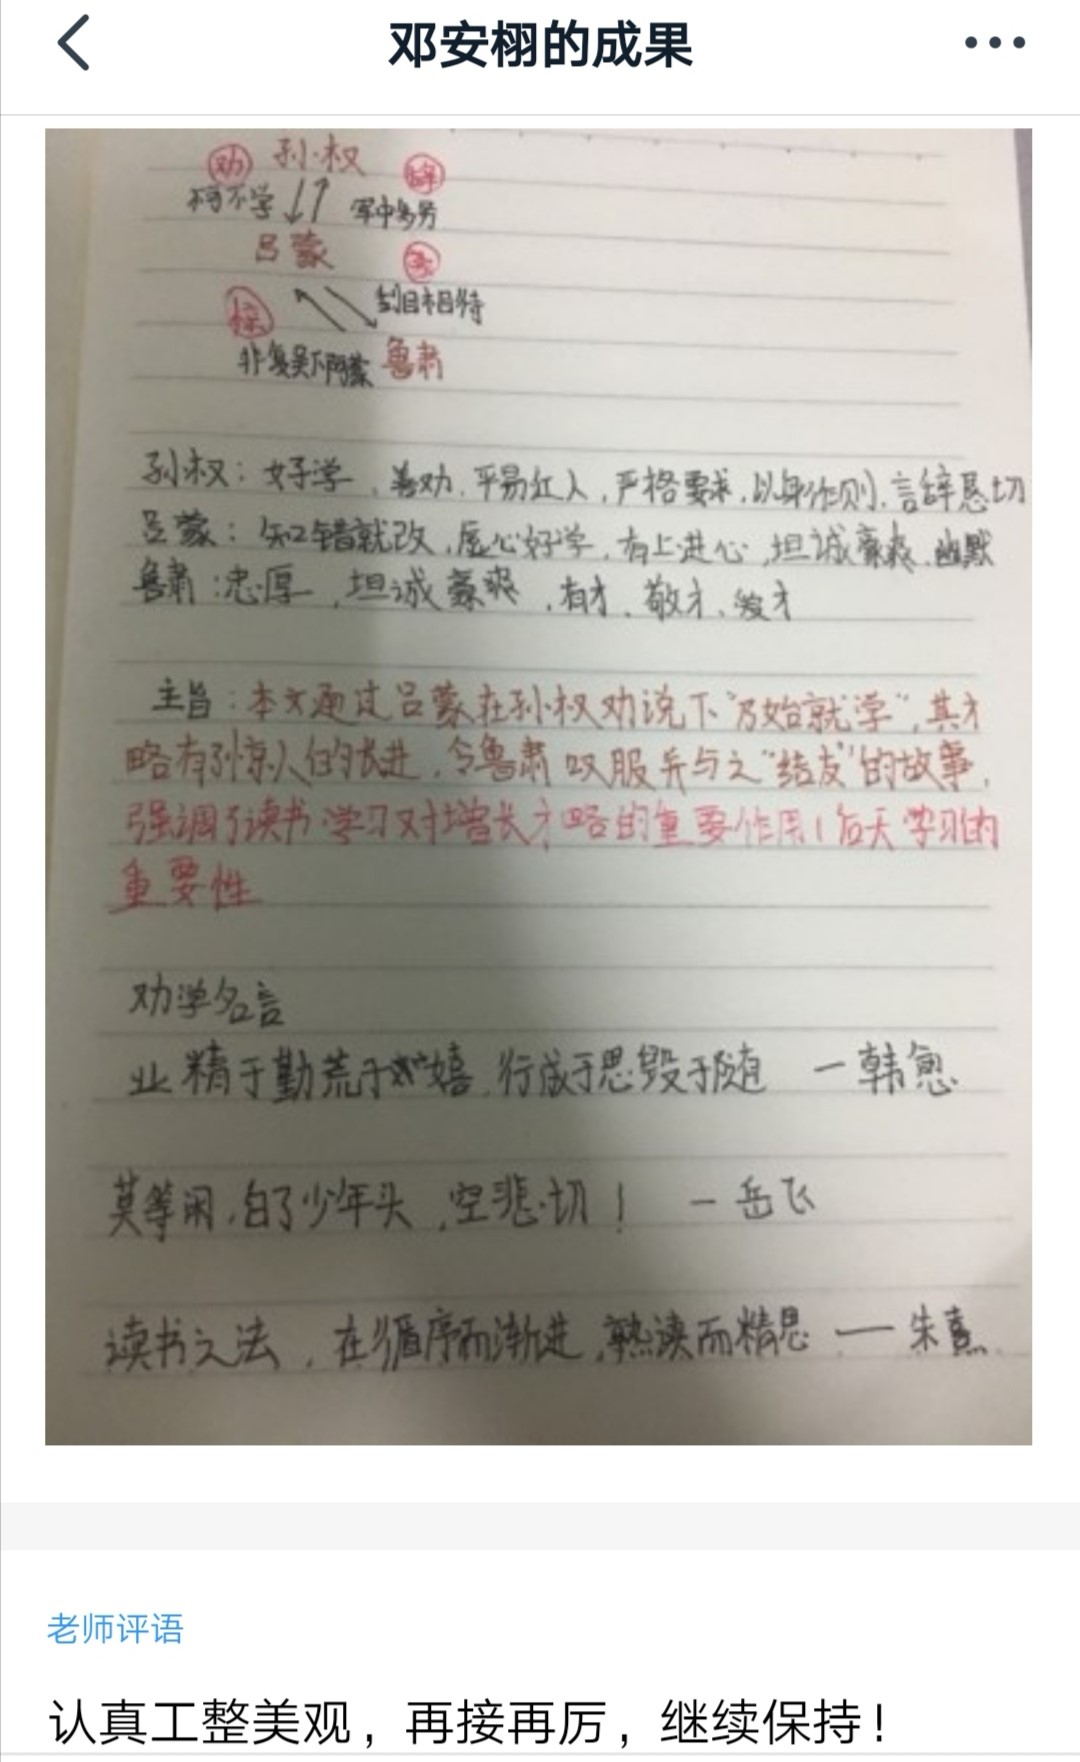 邓安栩的成果
劝 孙权 辞
不可不学 军中多务
吕蒙
刮目相待
非复吴下阿蒙 鲁肃
孙权：好学、善劝、平易近人，严格要求，以身作则、言辞恳切
吕蒙：知错就改，虚心好学，有上进心，坦诚豪爽、幽默
鲁肃：忠厚，坦诚豪爽，有才、敬才、爱才
主旨：本文通过吕蒙在孙权劝说下“乃始就学”，其才
略有了惊人的长进，令鲁肃叹服并与之“结友”的故事，
强调了读书学习对增长才略的重要作用/后天学习的
重要性
劝学名言
业精于勤荒于嬉，行成于思毁于随 —韩愈
莫等闲，白了少年头，空悲切！ —岳飞
读书之法，在循序而渐进，熟读而精思 ——朱熹
老师评语
认真工整美观，再接再厉，继续保持！